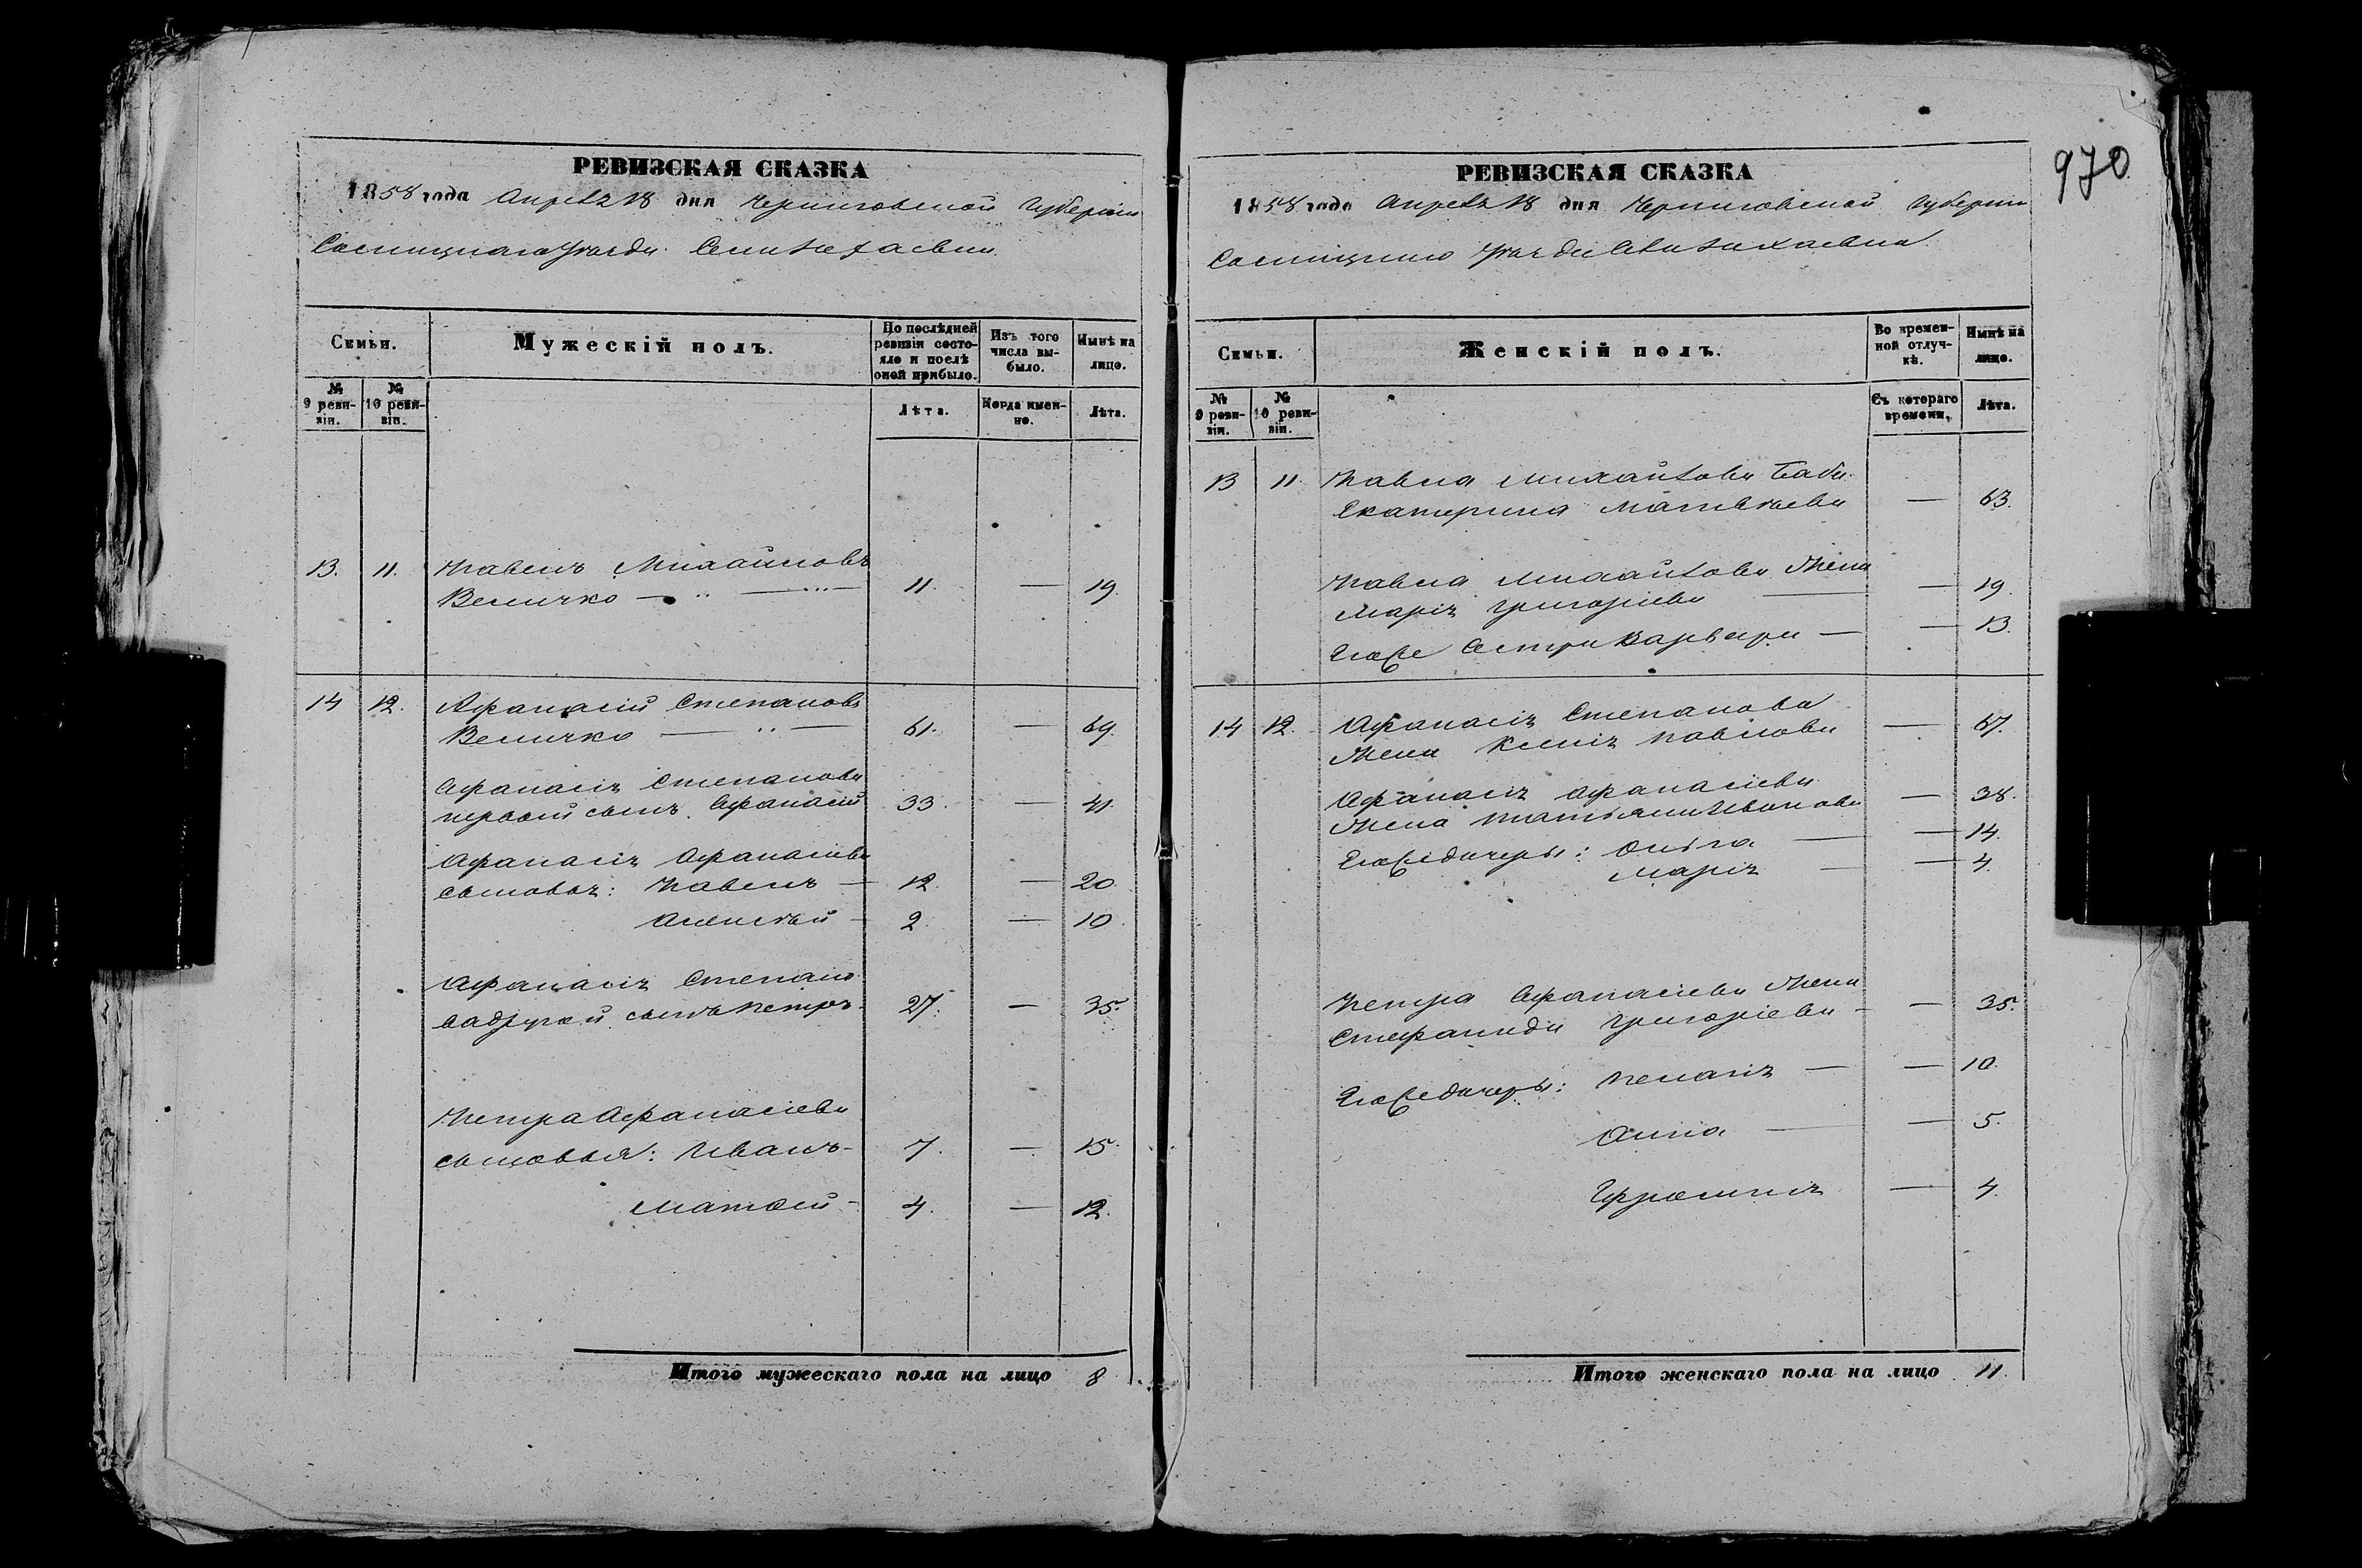 970
РЕВИЗСКАЯ СКАЗКА
1858 года Апреля 18 дня Черниговской Губернии
Сосницкаго Уезда
Семьи.
Мужескій полъ.
По послѣдней ревизіи состояло и послѣ оной прибыло.
Изъ того числа выбыло.
Нынѣ на лицо.
№ 9 ревизіи.
№ 10 ревизіи.
Лѣта.
Когда именно.
Лѣта.
13. 11. Павелъ Михайловъ
Величко 11. — 19.
14 12. Афанасій Степановъ
Величко 61. — 69.
Афанасія Степанова
первый сынъ Афанасій 33. — 41
Афанасія Афанасіева
сыновья: Павелъ — 12. — 20.
Алексѣй 2. — 10.
Афанасія Степано
ва другой сынъ Петръ 27. — 35.
Петра Афанасіева
сыновья: Иванъ 7. — 15.
Матвѣй 4. — 12.
Итого мужескаго пола на лицо 8
РЕВИЗСКАЯ СКАЗКА
1858 года Апреля 18 дня Черниговской Губернии
Сосницкаго Уезда
Семьи.
Женскій полъ.
Во временной отлучкѣ.
Нынѣ на лицо.
№ 9 ревизіи.
№ 10 ревизіи.
Съ котораго времени.
Лѣта.
13 11. Павла Михайлова баба
Екатерина Матвѣева — 63.
Павла Михайлова жена
Марія Григоріева — 19.
Его же сестра Варвара — 13.
14 12. Афанасія Степанова
жена Ксенія Павлова — 67.
Афанасія Афанасіева
жена Татьяна Иванова — 38.
Его же дочери: Ольга — 14.
Марія — 4.
Петра Афанасіева жена
Стефанида Григоріева — 35.
Его же дочери: Пелагія — 10.
Анна — 5.
Ефросинія — 4.
Итого женскаго пола на лицо 11.